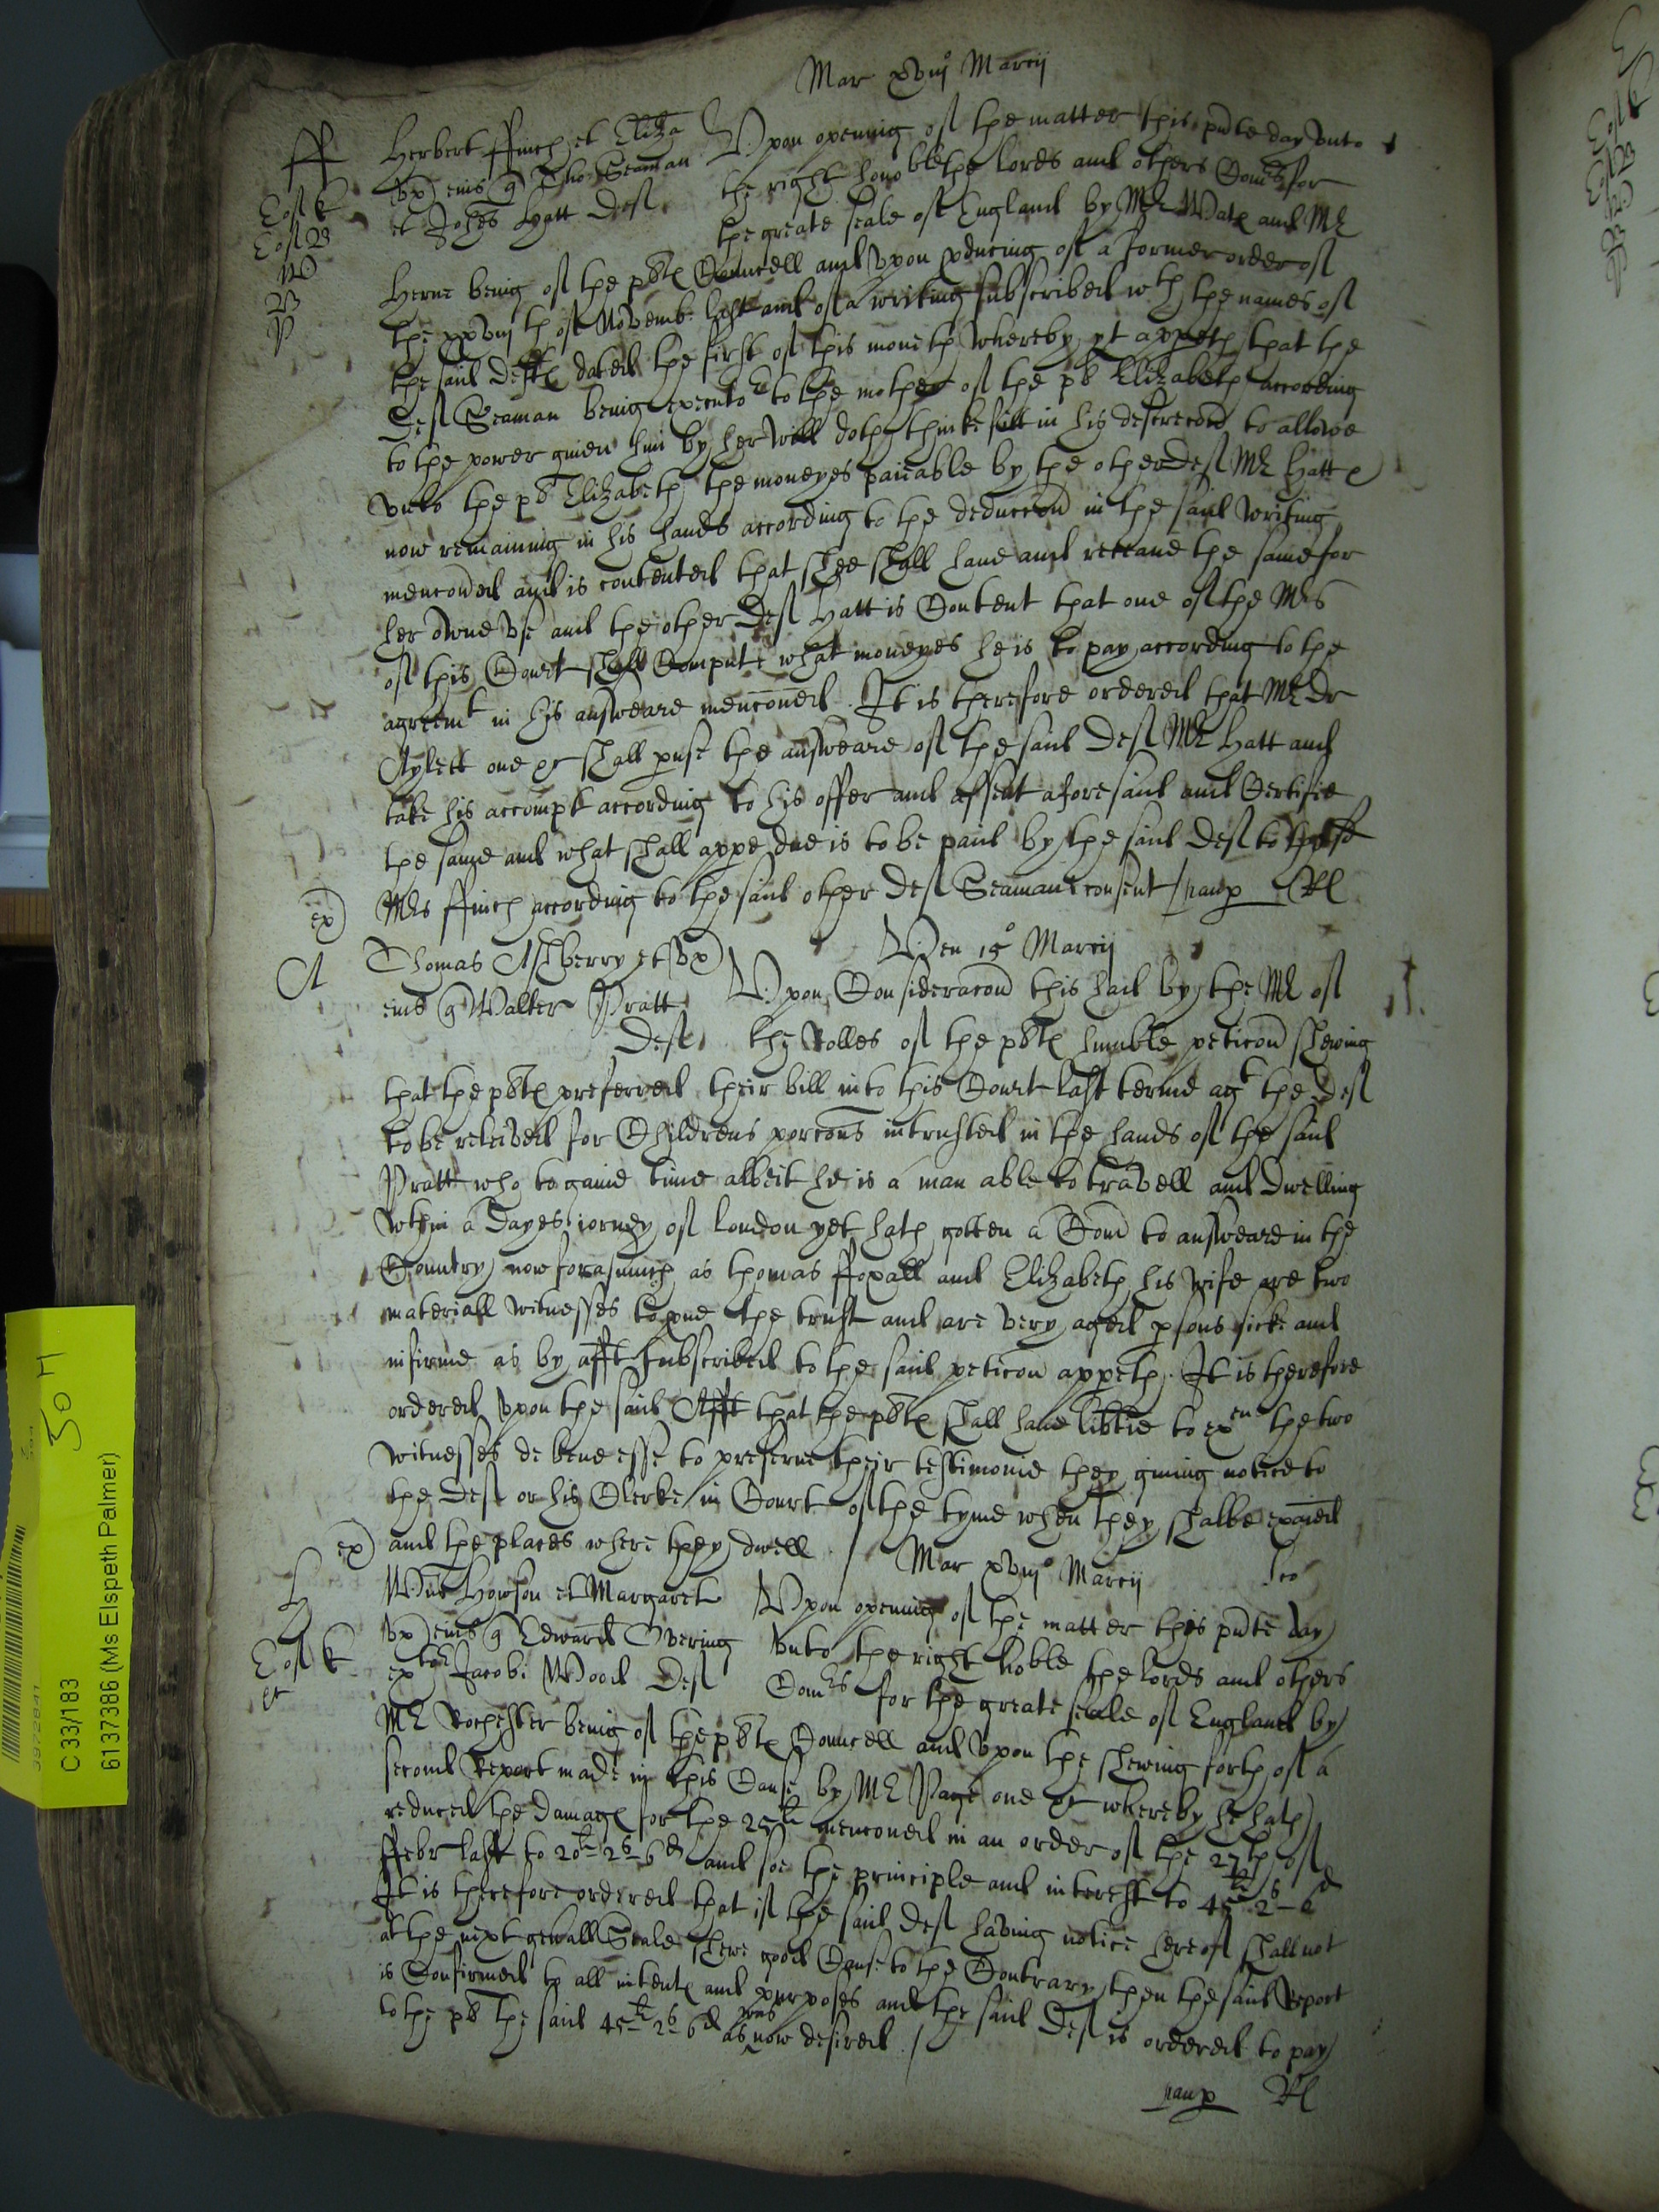 Mar xviijo Marcij
ff
Herbert ffinch et Eliza
ux eius q Tho Seaman
et Johes Hatt Deft
Upon opening of the matter this pnte day unto
the right honoble the lords and others Comrs for
the greate seale of England by Mr Wate and Mr
Herne being of the plts Councell and upon producing of a former order of
the xxviijth of Novembr last and of a writing subscribed wth the names of
the said Defts dated the first of this moneth whereby yt appeth that the
Deft Seaman being executor to the mother of the pl Elizabeth according
to the power given him by her will doth thinke fitt in his descrecon to allowe
unto the pl Elizabeth the moneyes paieable by the other deft Mr Hatt
now remaining in his hands according to the deduccon in the said writing
menconed and is contented that shee shall have and receave the same for
her owne use and the other Deft Hatt is Content that one of the Mrs
of this Court shall Compute what moneyes he is to pay according to the
agreemt in his answeare menconed. It is therefore ordered that Mr Dr
Aylett one &c shall puse the answeare of the said Deft Mr Hatt and
take his accompt according to his offer and assent aforesaid and Certifie
the same and what shall appe due is to be paid by the said Deft to
Mrs ffinch according to the said other Deft Seamans consent / Rl
ex
A
Wen 19o Marcij
Thomas Ashberry et ux
eius q Walter Pratt
Deft
Upon Consideracon this had by the Mr of
the Rolles of the plts humble peticon shewing
that the plts preferred their bill into this Court last terme agt the Deft
to be releived for Childrens porcons intrusted in the hands of the said
Pratt who to gaine time albeit he is a man able to travell and dwelling
wthin a dayes iorney of london yet hath gotten a Com to answeare in the
Country now forasmuch as Thomas ffoxall and Elizabeth his wife are two
materiall witnesses to pve the trust and are very aged psons sicke and
infirme as by afft subscribed to the said peticon appeth. It is therefore
ordered upon the said Afft that the plts shall have libtie to exen the two
witnesses de bene esse to preserve their testimonie they giving notice to
the Deft or his Clerke in Court of the tyme when they shalbe exaied
and the places where they dwell /
ex
H
Mar xviijo Marcij
Willm Howson et Margaret
ux eius q Edward Overing
extor Jacobi Wood Deft
Upon opening of the matter this pnte day
unto the right hoble the lords and others
Comrs for the greate seale of England by
Mr Rochester being of the plts Councell and upon the shewing forth of a
second Report made in this Cause by Mr Page one &c whereby he hath
reduced the damages for the 25li menconed in an order of the 27th of
ffebr last to 20li 2s 6d and soe the principle and interest to 45li 2s 6d
It is therefore ordered that if the said Deft having notice hereof shall not
at the next genall Seale shewe good Cause to the Contrary then the said Report
is Confirmed to all intents and purposes and the said Deft is ordered to pay
to the pl the said 45li 2s 6d as was now desired /
Rl
C 33/183
6137386 (Ms Elspeth Palmer)
30 H